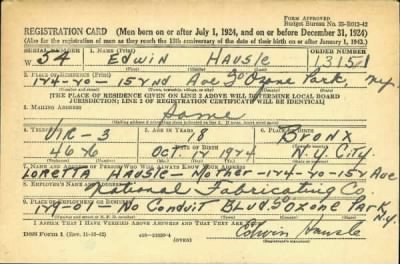 FORM APPROVED
Budget Bureau No. 33-R012-42
REGISTRATION CARD—(Men born on or after July 1, 1924, and on or before December 31, 1924)
(Also for the registration of men as they reach the 18th anniversary of the date of their birth on or after January 1, 1943.)
SERIAL NUMBER 1. NAME (Print) ORDER NUMBER
W 34 Edwin Hausle 13151
(First) (Middle) (Last)
2. PLACE OF RESIDENCE (Print)
174-40-152nd Ave So Ozone Park, N.Y.
(Number and street) (Town, township, village, or city) (County) (State)
[THE PLACE OF RESIDENCE GIVEN ON LINE 2 ABOVE WILL DETERMINE LOCAL BOARD
JURISDICTION; LINE 2 OF REGISTRATION CERTIFICATE WILL BE IDENTICAL]
3. MAILING ADDRESS
Same
4. TELEPHONE 5. AGE IN YEARS 6. PLACE OF BIRTH
18 Bronx
DATE OF BIRTH
4646 Oct 14 1924 N.Y. City
7. NAME AND ADDRESS OF PERSON WHO WILL ALWAYS KNOW YOUR ADDRESS
Loretta Hausle-Mother-174-40-152 Ave
8. EMPLOYER'S NAME AND ADDRESS
National Fabricating Co.
9. PLACE OF EMPLOYMENT OR BUSINESS
174-01-No Conduit Blvd. So Ozone Park, N.Y.
(Number and street or R. F. D. number) (Town) (County) (State)
I AFFIRM THAT I HAVE VERIFIED ABOVE ANSWERS AND THAT THEY ARE TRUE.
DSS Form 1 (Rev. 11-16-42) (OVER) Edwin Hausle